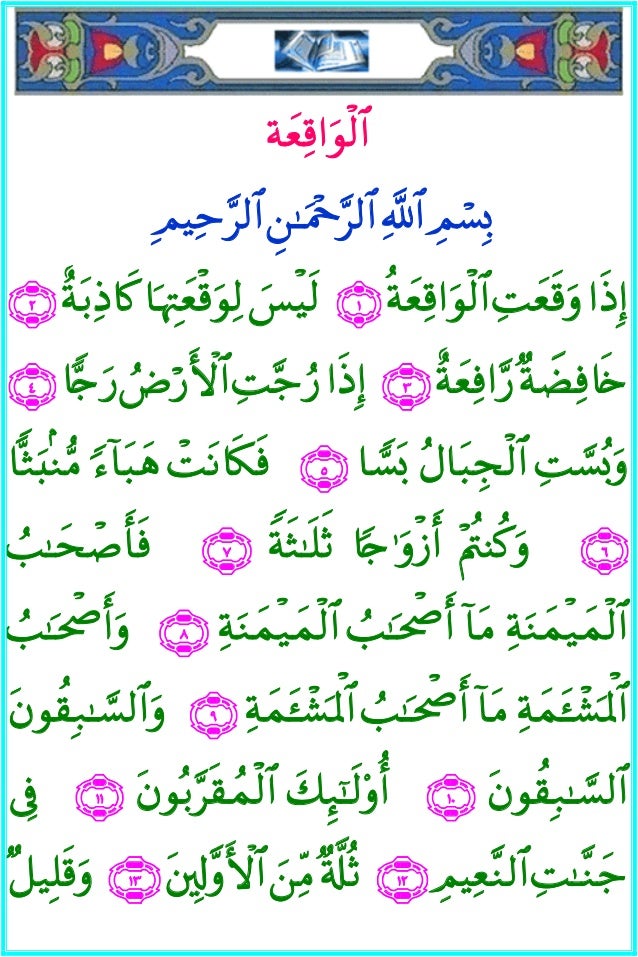 ٱلْوَاقِعَة
بِسْمِ ٱللَّهِ ٱلرَّحْمَـٰنِ ٱلرَّحِيمِ
إِذَا وَقَعَتِ ٱلْوَاقِعَةُ ١ لَيْسَ لِوَقْعَتِهَا كَاذِبَةٌ ٢
خَافِضَةٌ رَّافِعَةٌ ٣ إِذَا رُجَّتِ ٱلْأَرْضُ رَجًّا ٤
وَبُسَّتِ ٱلْجِبَالُ بَسًّا ٥ فَكَانَتْ هَبَآءً مُّنۢبَثًّا
٦ وَكُنتُمْ أَزْوَٰجًا ثَلَـٰثَةً ٧ فَأَصْحَـٰبُ
ٱلْمَيْمَنَةِ مَآ أَصْحَـٰبُ ٱلْمَيْمَنَةِ ٨ وَأَصْحَـٰبُ
ٱلْمَشْـَٔمَةِ مَآ أَصْحَـٰبُ ٱلْمَشْـَٔمَةِ ٩ وَٱلسَّـٰبِقُونَ
ٱلسَّـٰبِقُونَ ١٠ أُو۟لَـٰٓئِكَ ٱلْمُقَرَّبُونَ ١١ فِى
جَنَّـٰتِ ٱلنَّعِيمِ ١٢ ثُلَّةٌ مِّنَ ٱلْأَوَّلِينَ ١٣ وَقَلِيلٌ